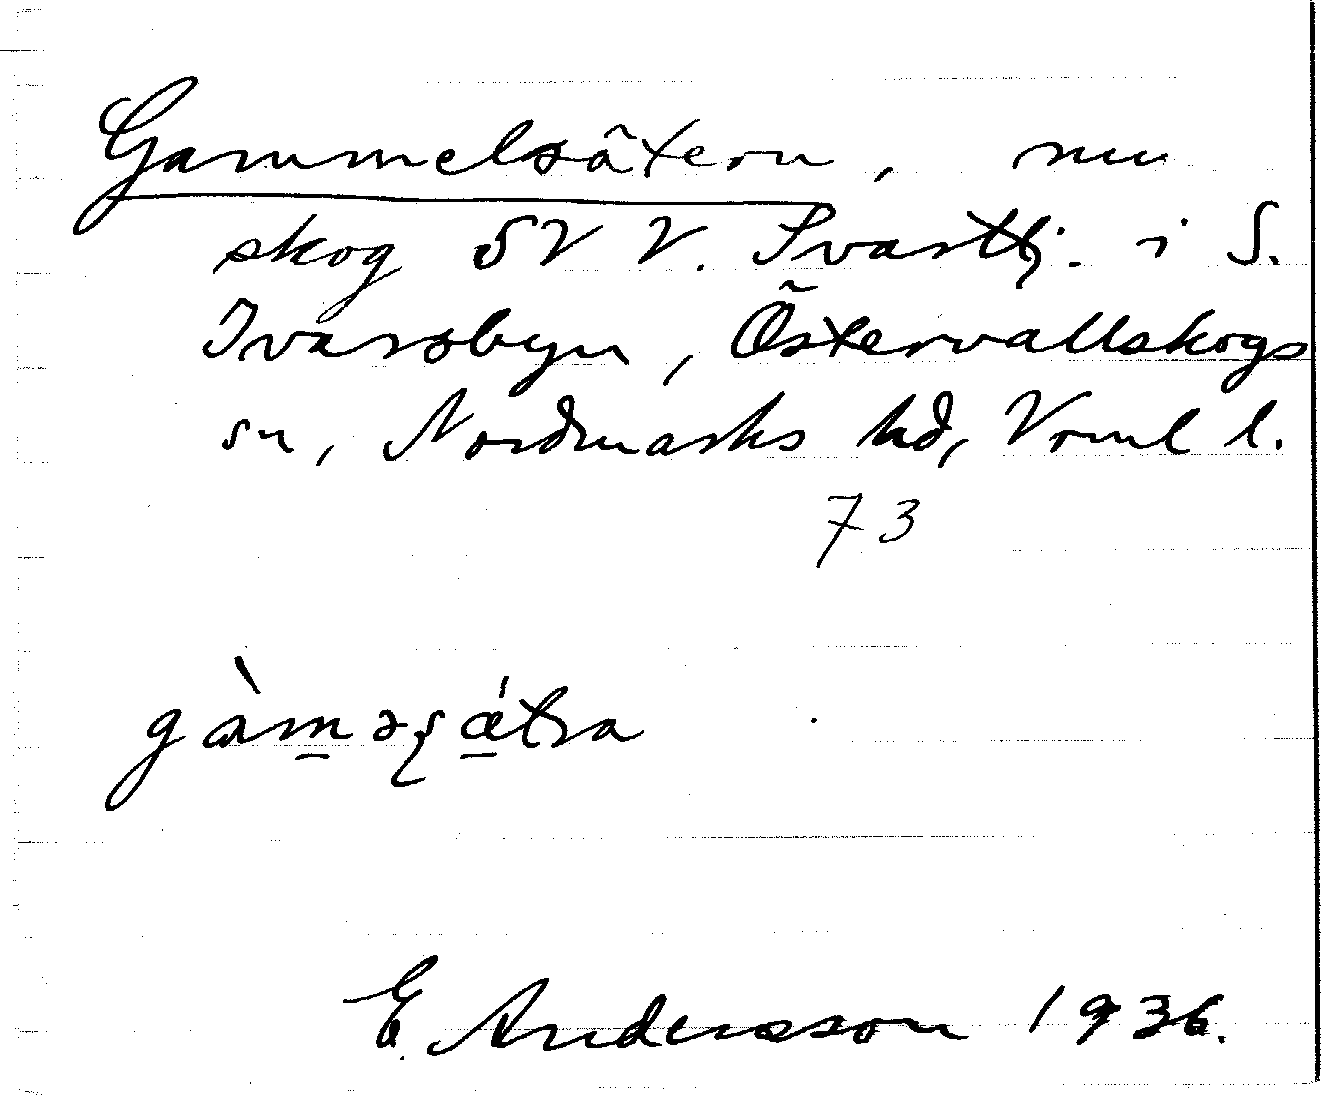 Gammelsätern, nu
skog SV V. Svarttj. i S.
Ivarsbyn, Östervallskogs
sn, Nordmarks hd, Värml l.
73
E. Andersson 1936.